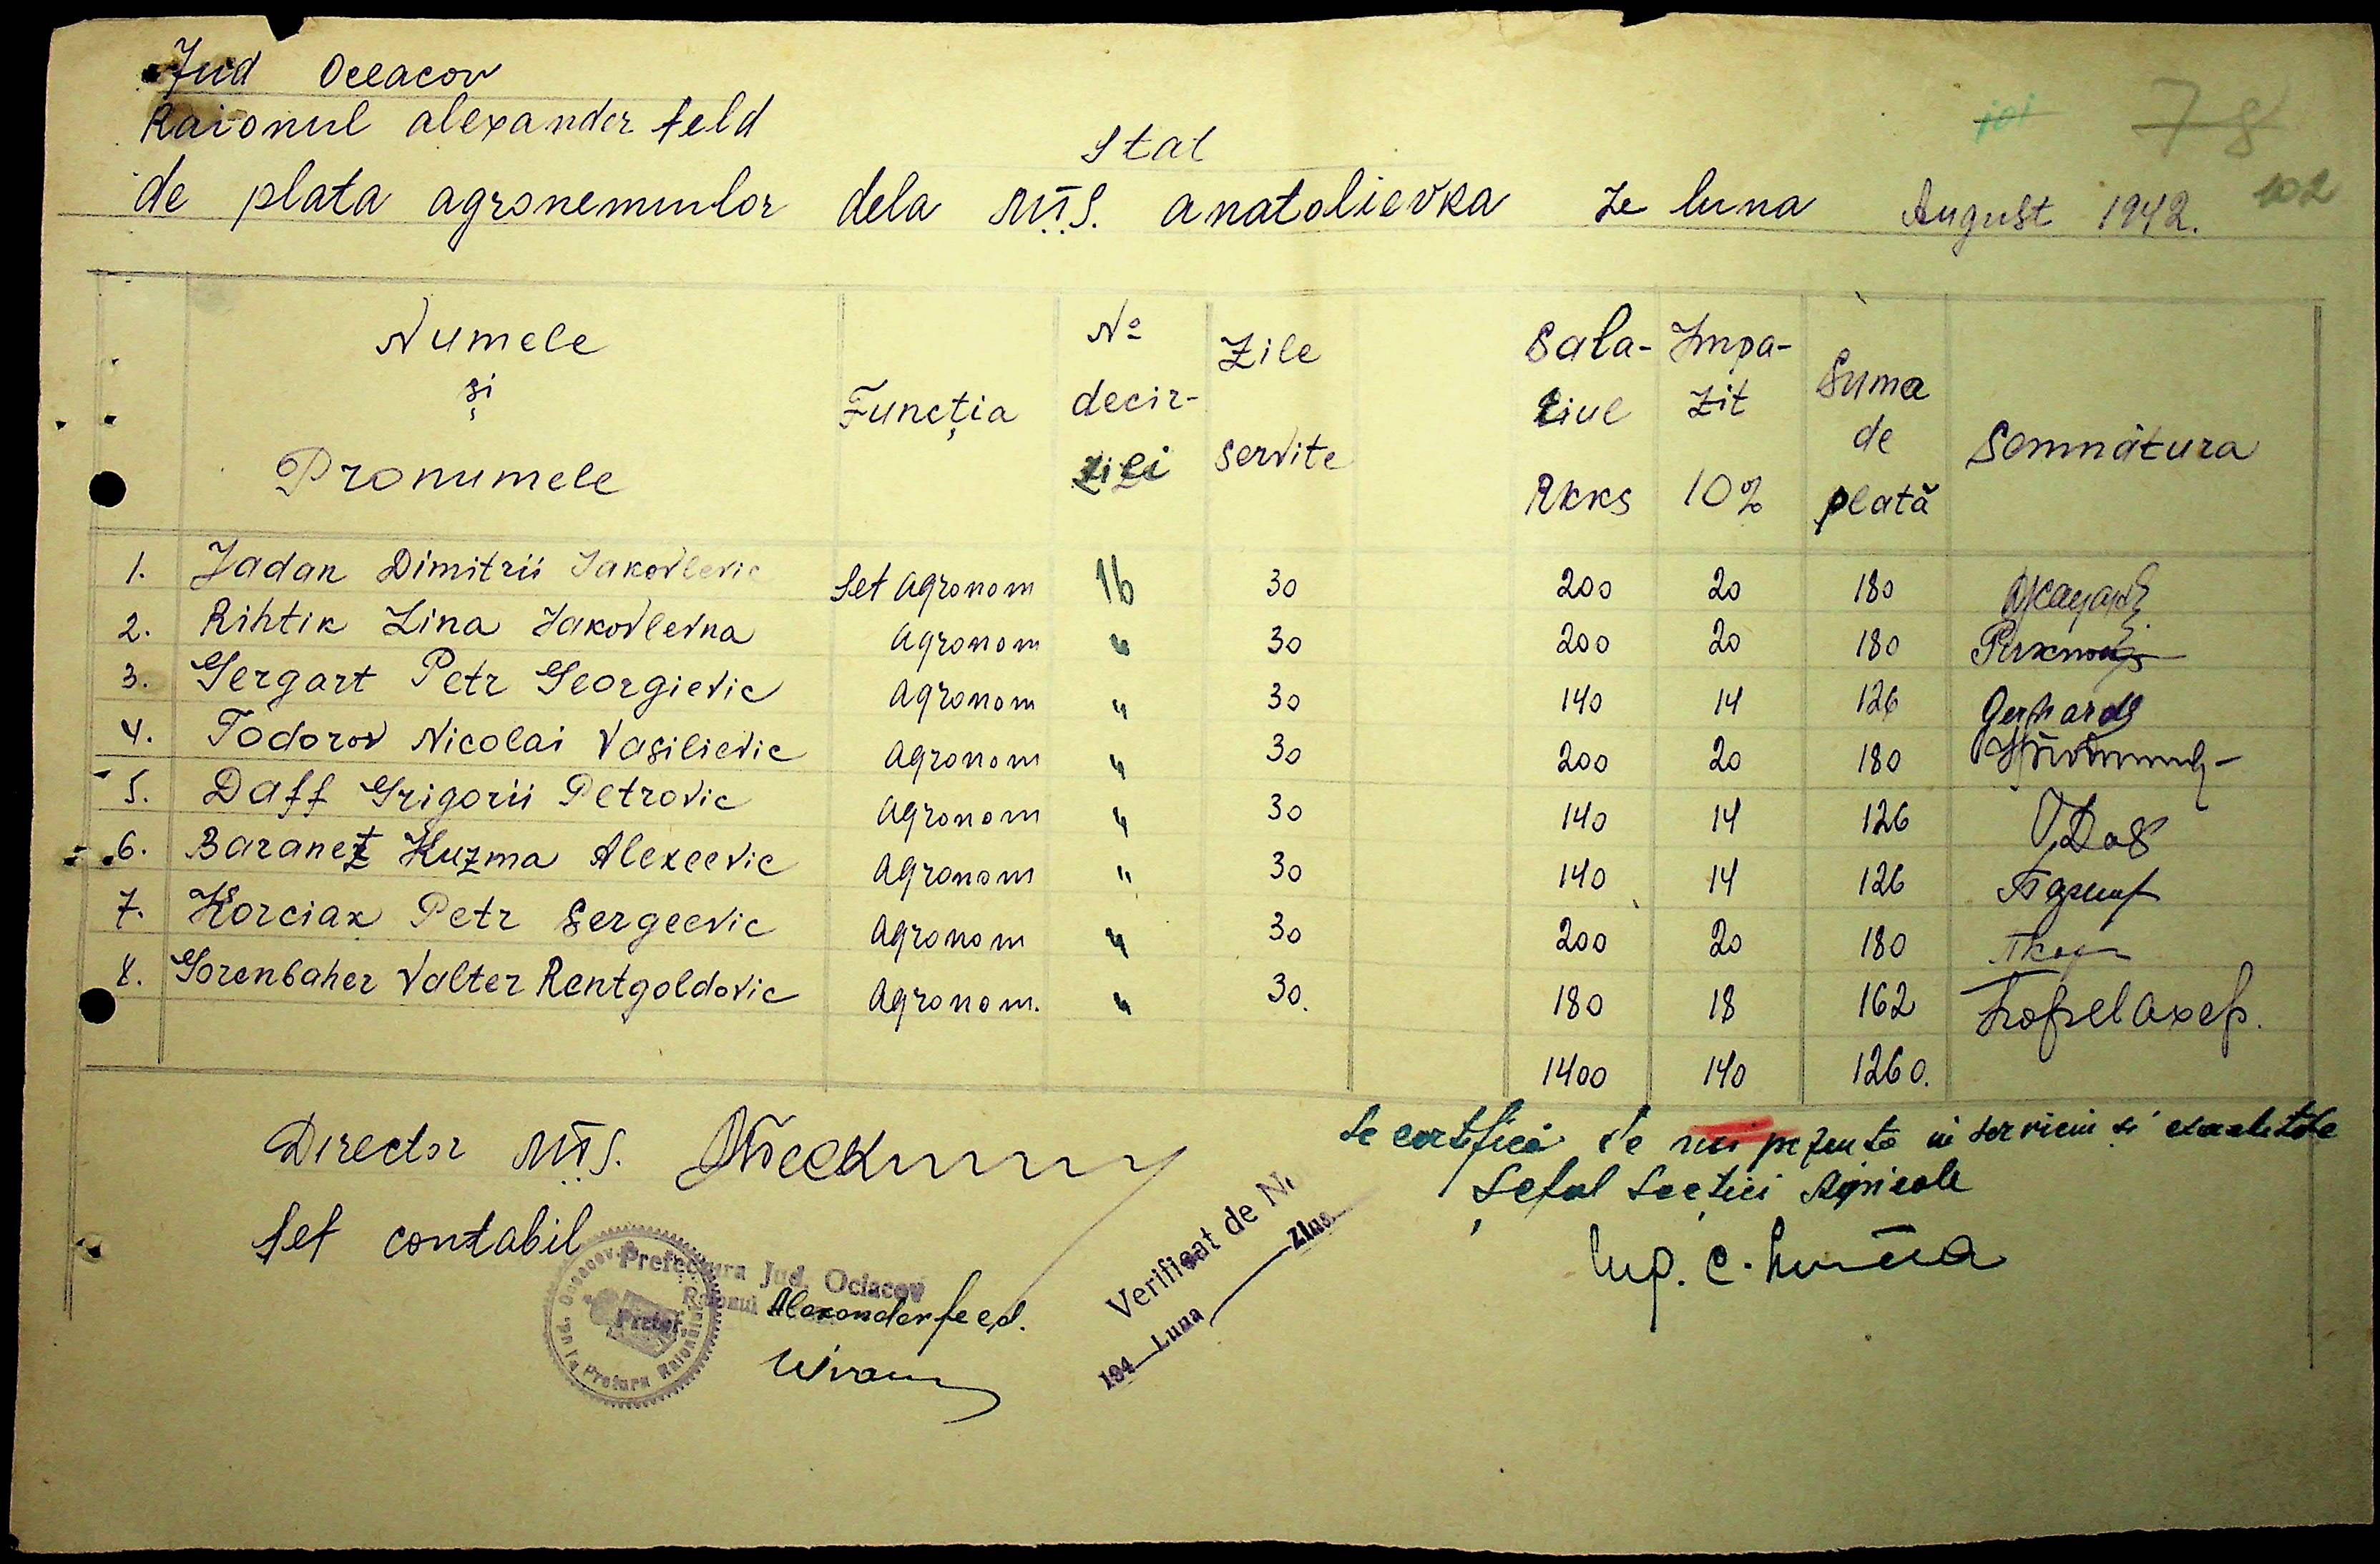 Jud Oceacov
Raionul alexander feld
Stat
de plata agronemmlor dela M.T.S. anatolievka ze luna August 1942.
78
102
Numele și Pronumele
Funcția
№ decir-zizi
Zile servite
Sala-ziul Rkks
Impa-zit 10%
Suma de plată
Somnătura
1. Jadan Dimitrii Iakovlevic Sef Agronom 16 30 200 20 180
2. Rihtik Zina Jakovlevna Agronom " 30 200 20 180
3. Gergart Petr Georgievic Agronom " 30 140 14 126 Gerhardt
4. Todorov Nicolai Vasilievic Agronom " 30 200 20 180
5. Daff Grigorii Petrovic Agronom " 30 140 14 126
6. Baranez Kuzma Alexeevic Agronom " 30 140 14 126
7. Korciak Petr Sergeevic Agronom " 30 200 20 180
8. Gorenbaher Valter Rentgoldovic Agronom. " 30. 180 18 162
1400 140 1260.
Director M.T.S.
Sef contabil
Se certifică de noi prezenta in serviciu si exactitate
Șeful Secției Agricole
Ing. C.
Prefectura Jud. Ociacov
Raionul Alexanderfeld.
Pretor
Verificat de N
194 Luna Ziua